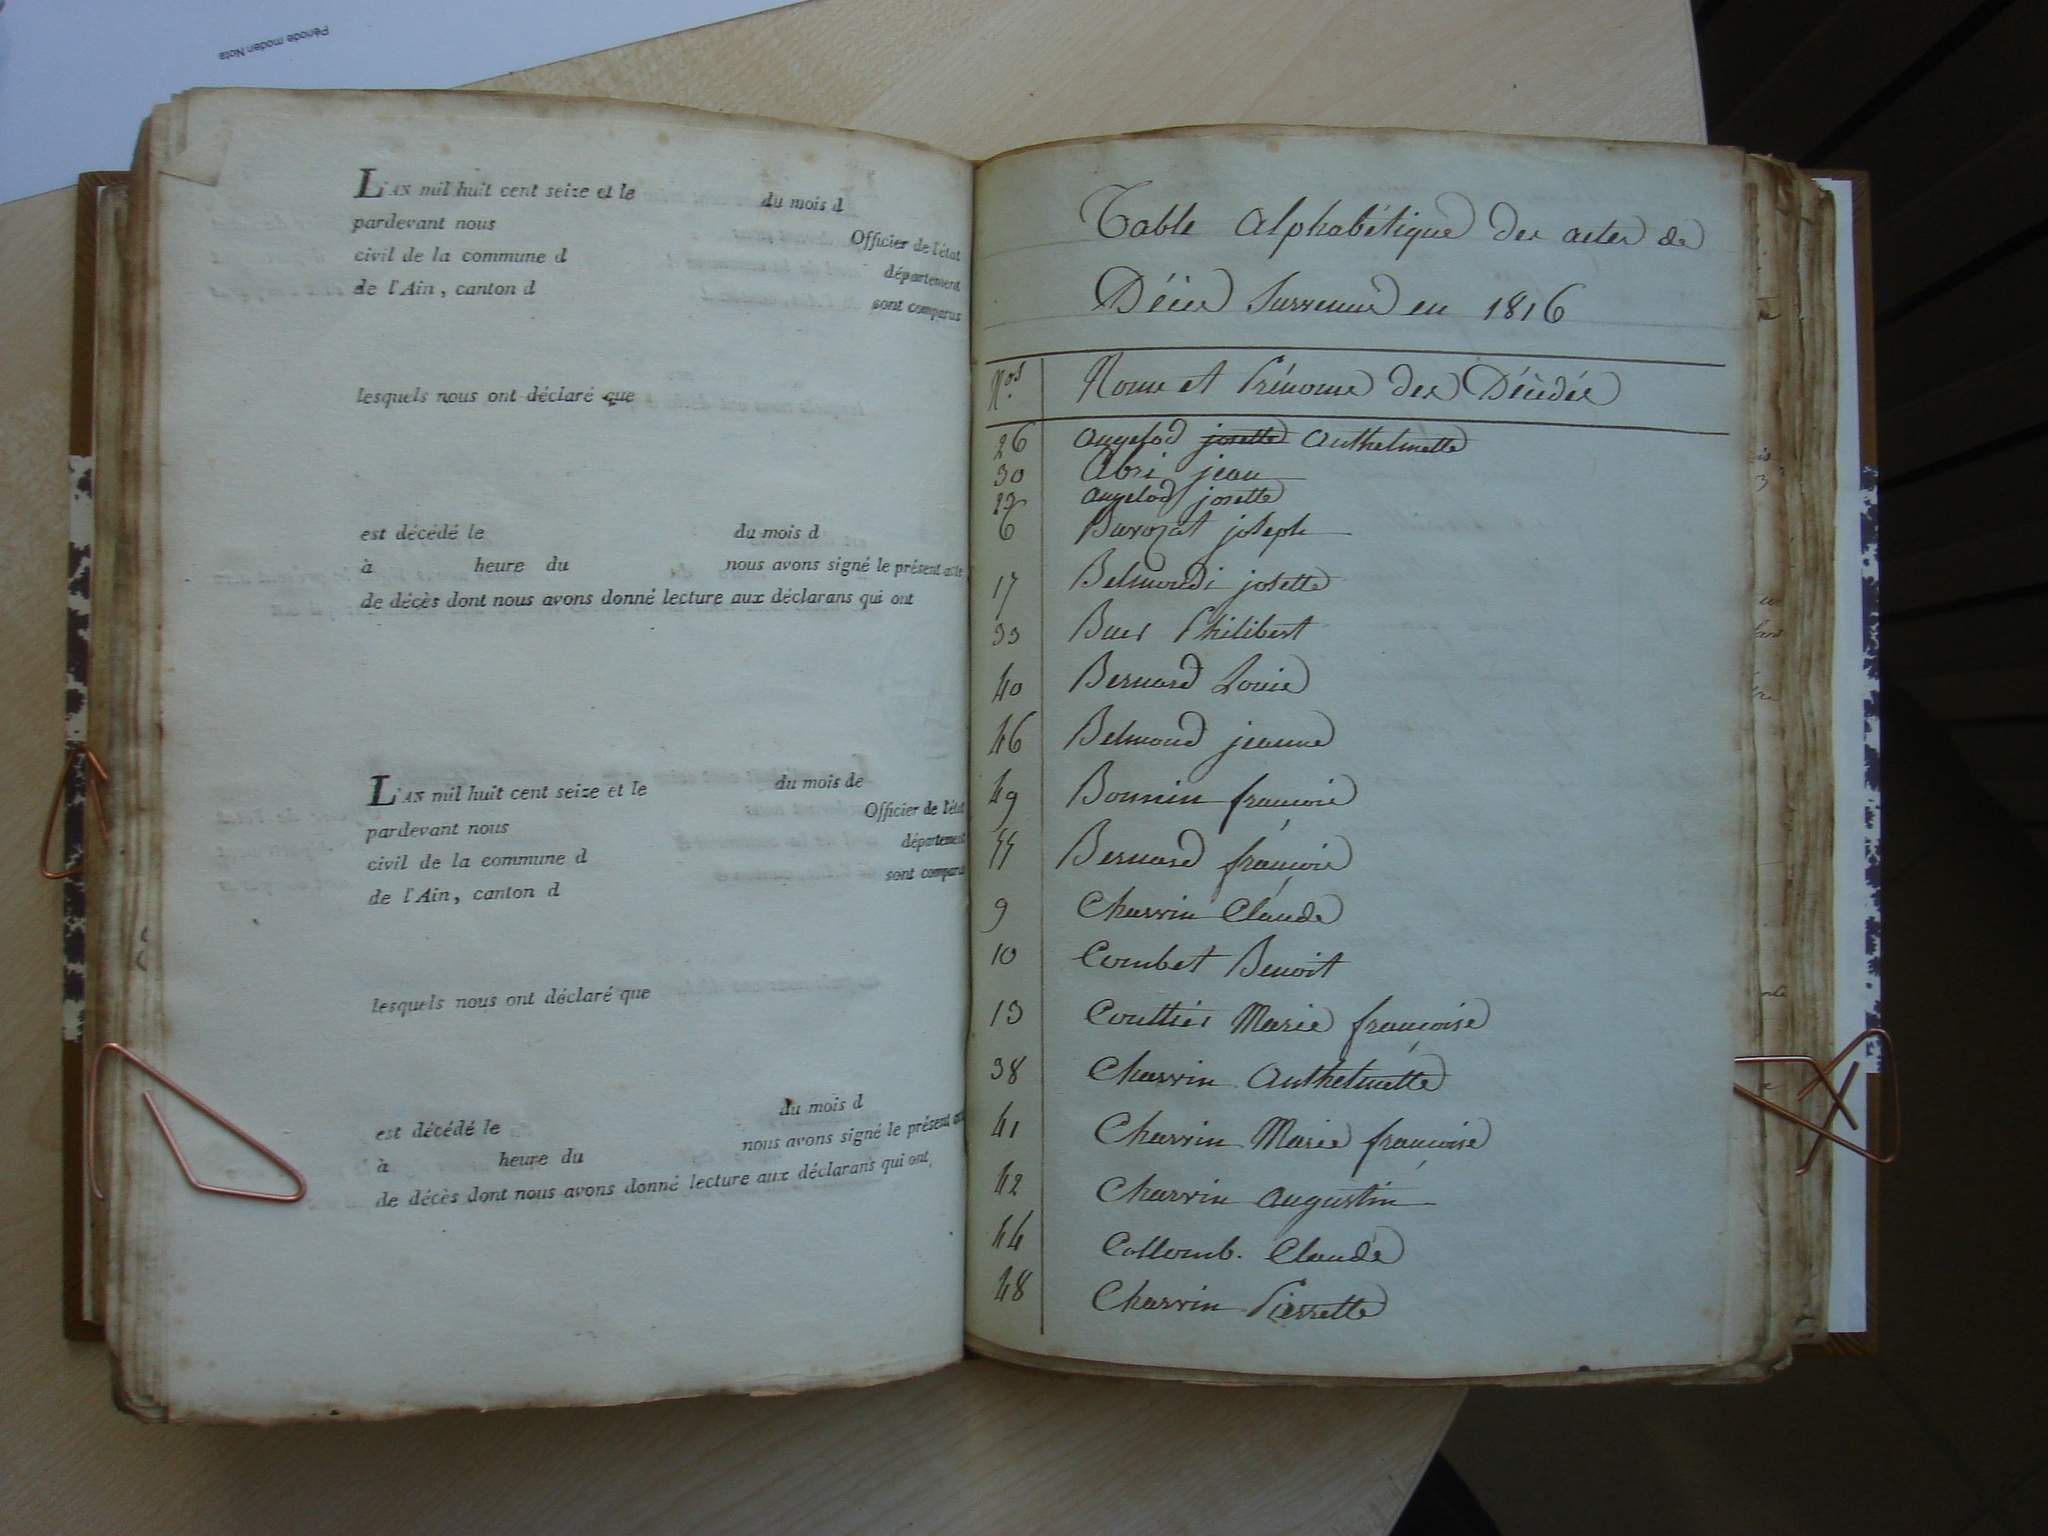 Période moden Nota
L'AN mil huit cent seize et le du mois d
pardevant nous Officier de l'état
civil de la commune d département
de l'Ain, canton d sont comparus
lesquels nous ont déclaré que
est décédé le du mois d
à heure du nous avons signé le présent acte
de décès dont nous avons donné lecture aux déclarans qui ont
L'AN mil huit cent seize et le du mois de
pardevant nous Officier de l'état
civil de la commune d département
de l'Ain, canton d sont comparus
lesquels nous ont déclaré que
est décédé le du mois d
à heure du nous avons signé le présent
de décès dont nous avons donné lecture aux déclarans qui ont
Table Alphabétique des actes de
Décès Survenus en 1816
Nos Noms et Prénoms des Décédés
26 angelod josette Anthelmette
30 Abri jean
23 angelod josette
6 joseph
17 Belmondi josette
33 Buer Philibert
40 Bernard Louis
46 Belmond jeanne
49 Bonnin françois
55 Bernard françois
9 Charvin Claude
10 Combet Benoit
13 Couttier Marie françoise
38 Charvin Anthelmette
41 Charvin Marie françoise
42 Charvin augustin
44 Collomb. Claude
48 Charvin Pierrette